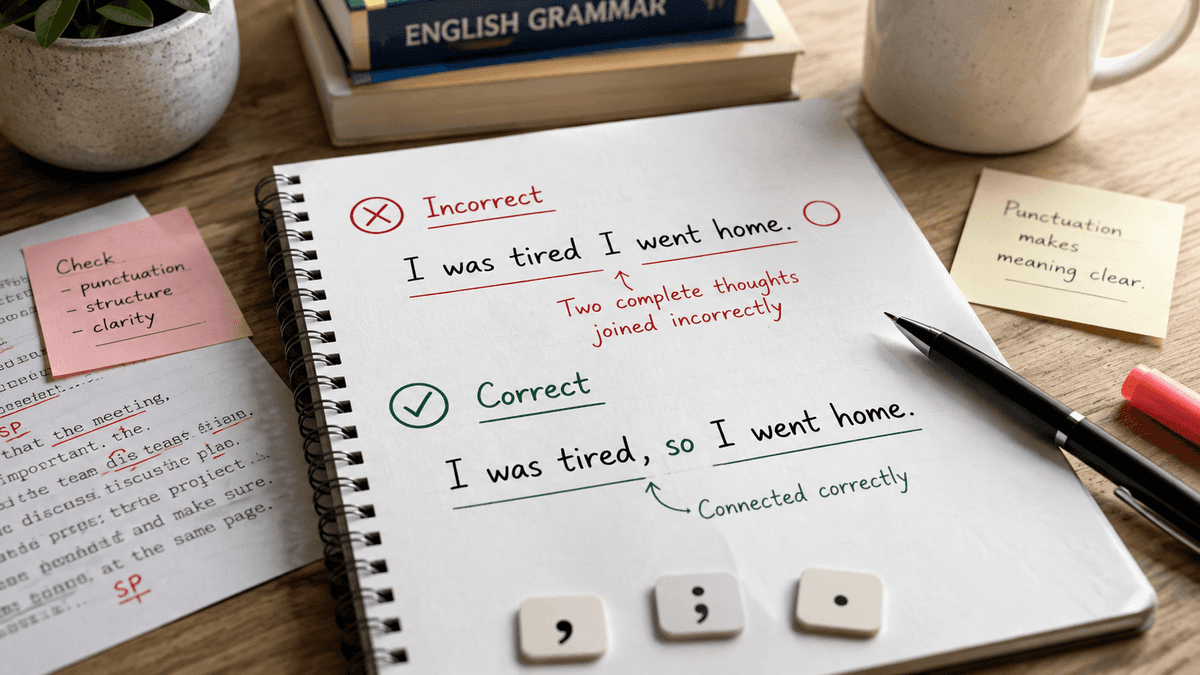 ENGLISH GRAMMAR
Incorrect
I was tired I went home.
Two complete thoughts
joined incorrectly
Correct
I was tired, so I went home.
Connected correctly
,
;
.
Check
- punctuation
- structure
- clarity
Punctuation
makes
meaning clear.
SP
that the meeting,
important. the.
the team dis
discuss
the project
and make sure.
at the same page.
SP